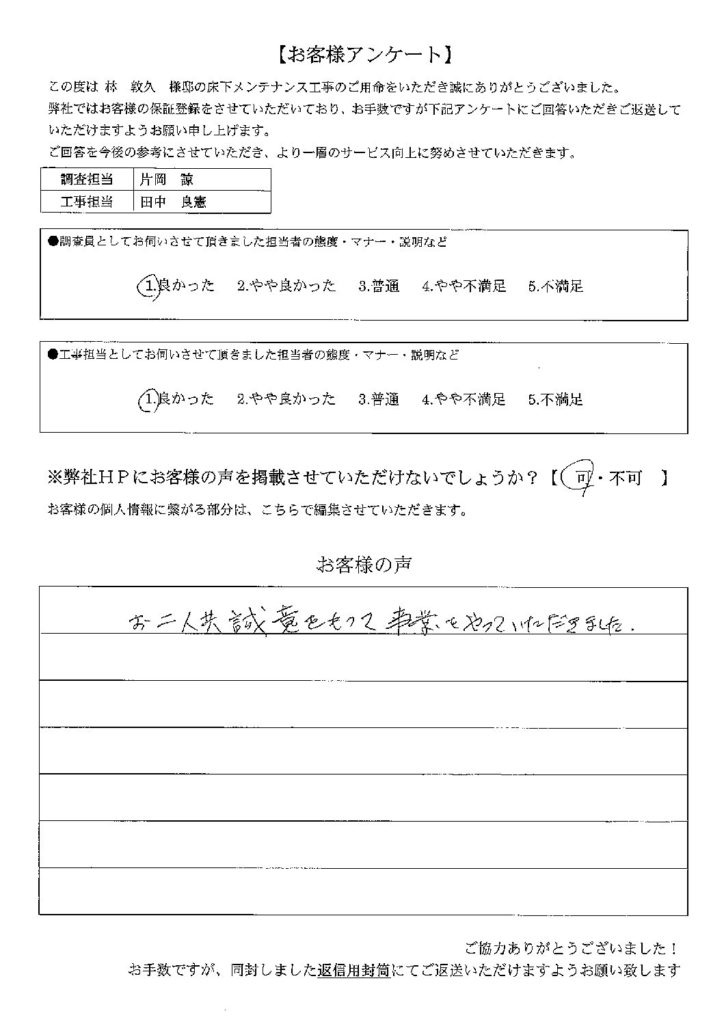 【お客様アンケート】
この度は 林 敦久 様邸の床下メンテナンス工事のご用命をいただき誠にありがとうございました。
弊社ではお客様の保証登録をさせていただいており、お手数ですが下記アンケートにご回答いただきご返送して
いただけますようお願い申し上げます。
ご回答を今後の参考にさせていただき、より一層のサービス向上に努めさせていただきます。
調査担当 片岡 諒
工事担当 田中 良憲
●調査員としてお伺いさせて頂きました担当者の態度・マナー・説明など
1.良かった 2.やや良かった 3.普通 4.やや不満足 5.不満足
●工事担当としてお伺いさせて頂きました担当者の態度・マナー・説明など
1.良かった 2.やや良かった 3.普通 4.やや不満足 5.不満足
※弊社ＨＰにお客様の声を掲載させていただけないでしょうか？【 可・不可 】
お客様の個人情報に繋がる部分は、こちらで編集させていただきます。
お客様の声
お二人共誠意をもって事業をやっていただきました.
ご協力ありがとうございました！
お手数ですが、同封しました返信用封筒にてご返送いただけますようお願い致します